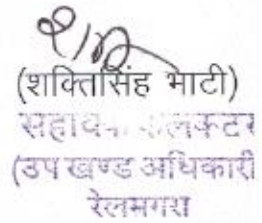 (शक्तिसिंह भाटी)
सहायक कलक्टर
(उप खण्ड अधिकारी
रेलमगरा